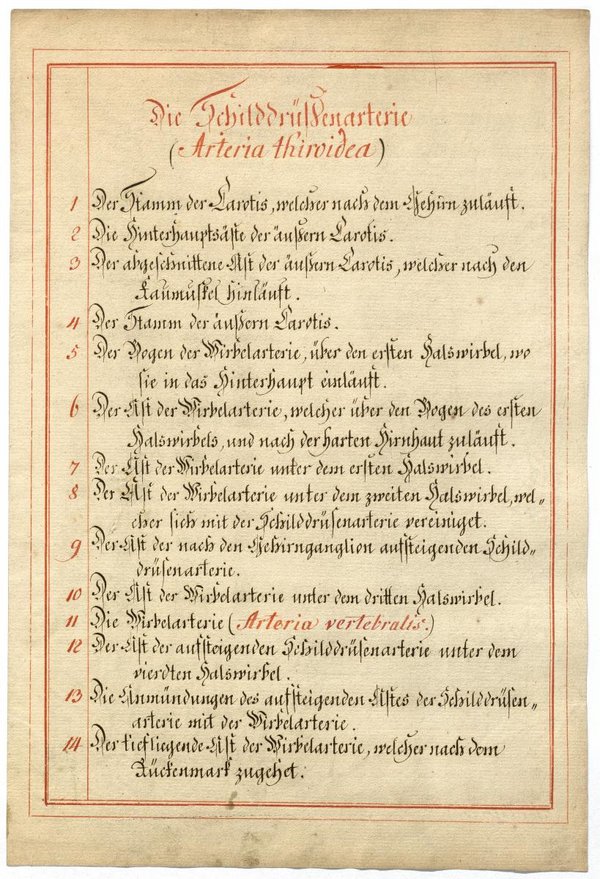 Die Schilddrüßenarterie
(Arteria thiroidea)
1 Der Stamm der Carotis, welcher nach dem Gehirn zuläuft.
2 Die Hinterhauptsäste der äußern Carotis.
3 Der abgeschnittene Ast der äußern Carotis, welcher nach den
Kaumuskel hinläuft.
4 Der Stamm der äußern Carotis.
5 Der Bogen der Wirbelarterie, über den ersten Halswirbel, wo
sie in das Hinterhaupt einläuft.
6 Der Ast der Wirbelarterie, welcher über den Bogen des ersten
Halswirbels, und nach der harten Hirnhaut zuläuft.
7 Der Ast der Wirbelarterie unter dem ersten Halswirbel.
8 Der Ast der Wirbelarterie unter dem zweiten Halswirbel, wel=
cher sich mit der Schilddrüsenarterie vereiniget.
9 Der Ast der nach den Gehirnganglion aufsteigenden Schild=
drüsenarterie.
10 Der Ast der Wirbelarterie unter dem dritten Halswirbel.
11 Die Wirbelarterie (Arteria vertebralis.)
12 Der Ast der aufsteigenden Schilddrüsenarterie unter dem
vierdten Halswirbel.
13 Die Anmündungen des aufsteigenden Astes der Schilddrüsen=
arterie mit der Wirbelarterie.
14 Der tiefliegende Ast der Wirbelarterie, welcher nach dem
Rückenmark zugehet.